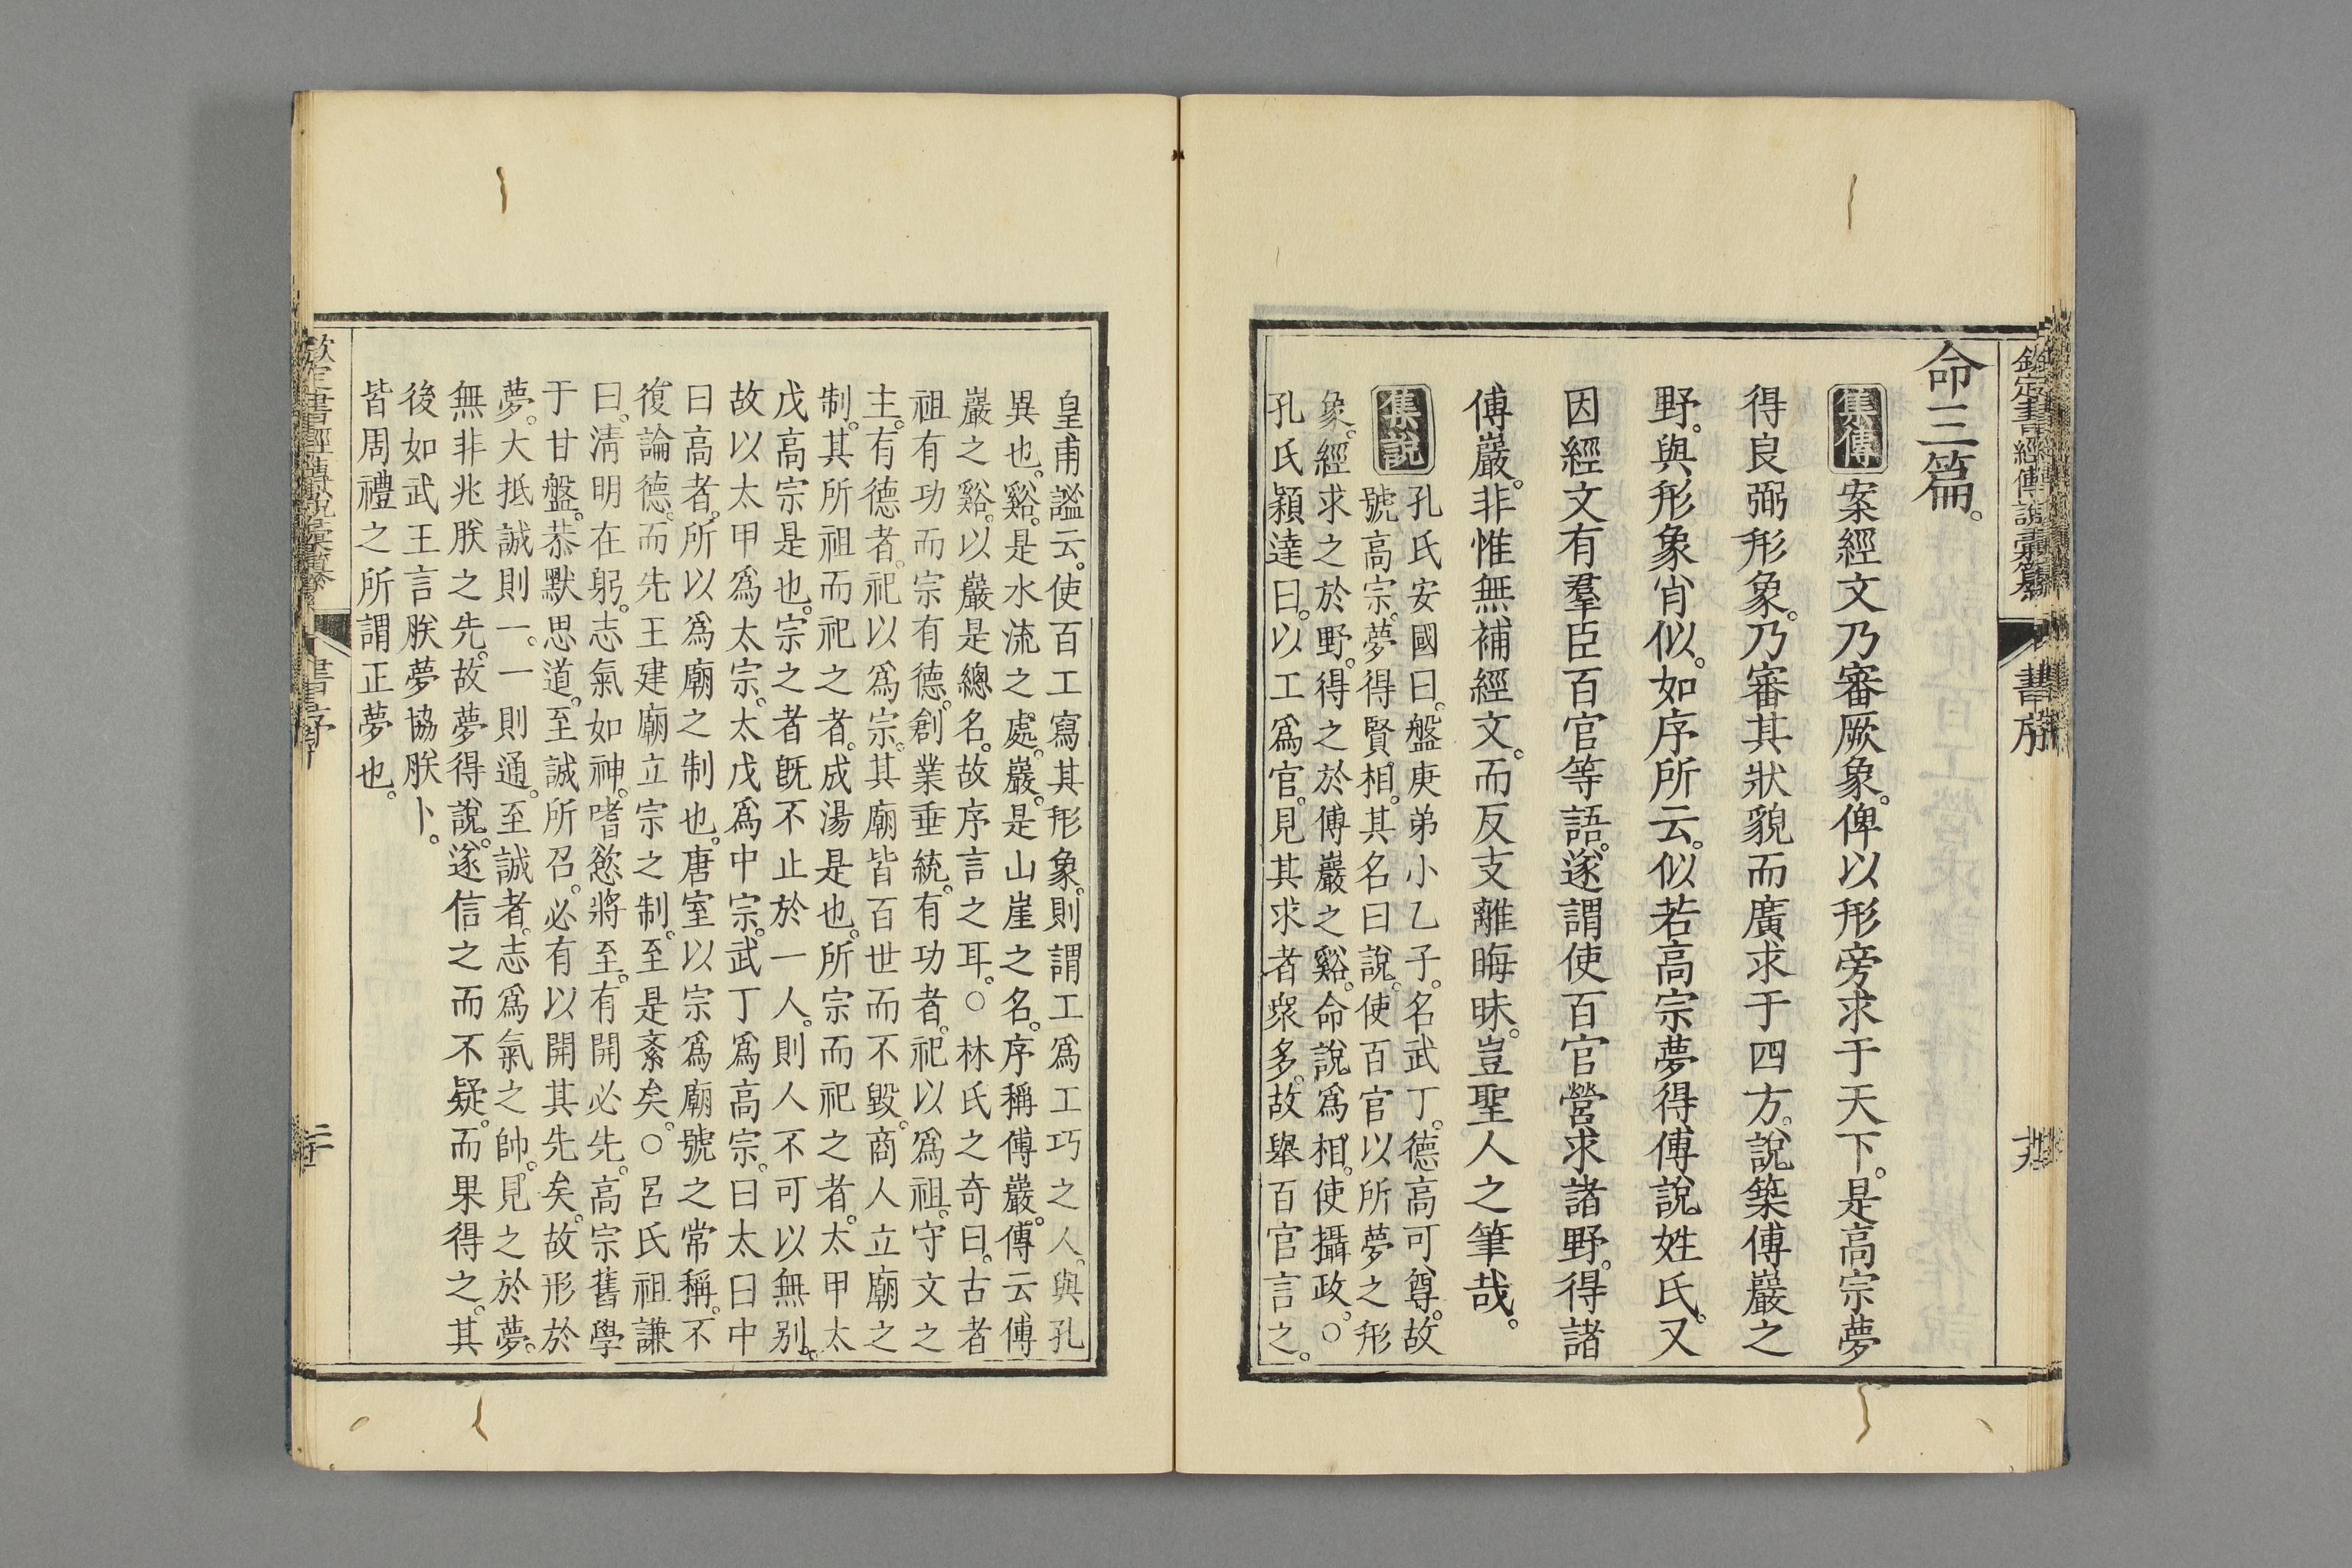 命三篇。
集傳 案經文乃審厥象。俾以形旁求于天下。是高宗夢
得良弼形象。乃審其狀貌而廣求于四方。說築傅巖之
野。與形象肖似。如序所云。似若高宗夢得傅說姓氏。又
因經文有羣臣百官等語。遂謂使百官營求諸野。得諸
傅巖。非惟無補經文。而反支離晦昧。豈聖人之筆哉。
集說 孔氏安國曰。盤庚弟小乙子。名武丁。德高可尊。故
號高宗。夢得賢相。其名曰說。使百官以所夢之形
象。經求之於野。得之於傅巖之谿。命說爲相。使攝政。○
孔氏穎達曰。以工爲官。見其求者衆多。故舉百官言之。
皇甫謐云。使百工寫其形象。則謂工爲工巧之人。與孔
異也。谿。是水流之處。巖。是山崖之名。序稱傅巖。傳云傅
巖之谿。以巖是總名。故序言之耳。○林氏之奇曰。古者
祖有功而宗有德。創業垂統。有功者。祀以爲祖。守文之
主。有德者。祀以爲宗。其廟皆百世而不毀。商人立廟之
制。其所祖而祀之者。成湯是也。所宗而祀之者。太甲太
戊高宗是也。宗之者旣不止於一人。則人不可以無別。
故以太甲爲太宗。太戊爲中宗。武丁爲高宗。曰太曰中
曰高者。所以爲廟之制也。唐室以宗爲廟號之常稱。不
復論德。而先王建廟立宗之制。至是紊矣。○呂氏祖謙
曰。淸明在躬。志氣如神。嗜慾將至。有開必先。高宗舊學
于甘盤。恭默思道。至誠所召。必有以開其先矣。故形於
夢。大抵誠則一。一則通。至誠者。志爲氣之帥。見之於夢。
無非兆朕之先。故夢得說。遂信之而不疑。而果得之。其
後如武王言朕夢協朕卜。
皆周禮之所謂正夢也。